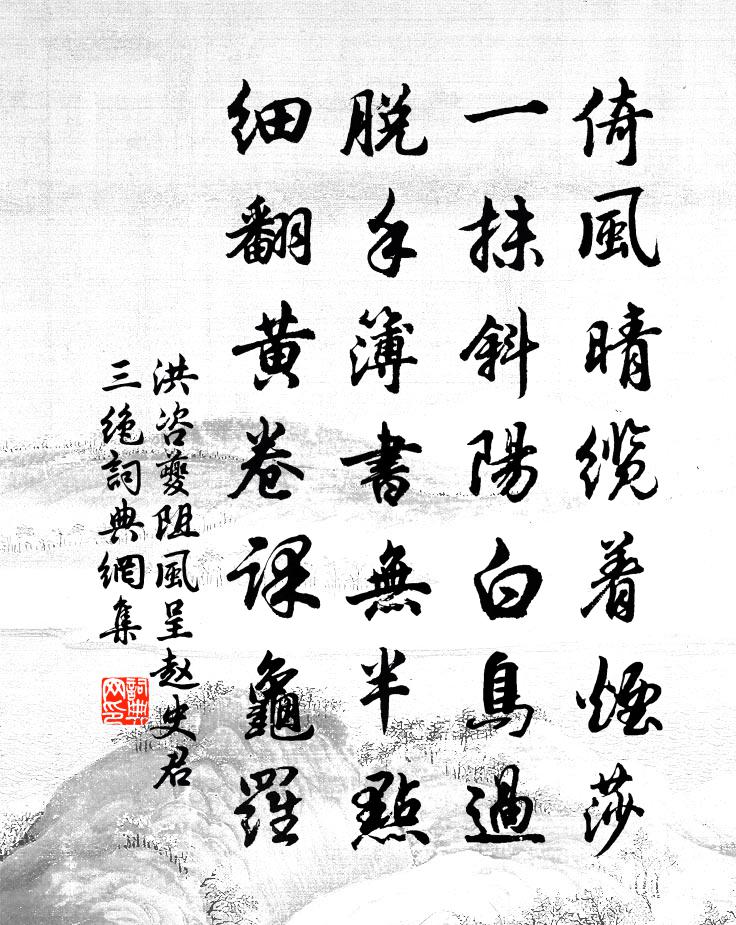 倚風晴纜着煙莎
一抹斜陽白鳥過
脫手簿書無半點
細翻黃卷課龜羅
洪咨夔阻風呈赵史君
三絶詞典網集
詞典网印